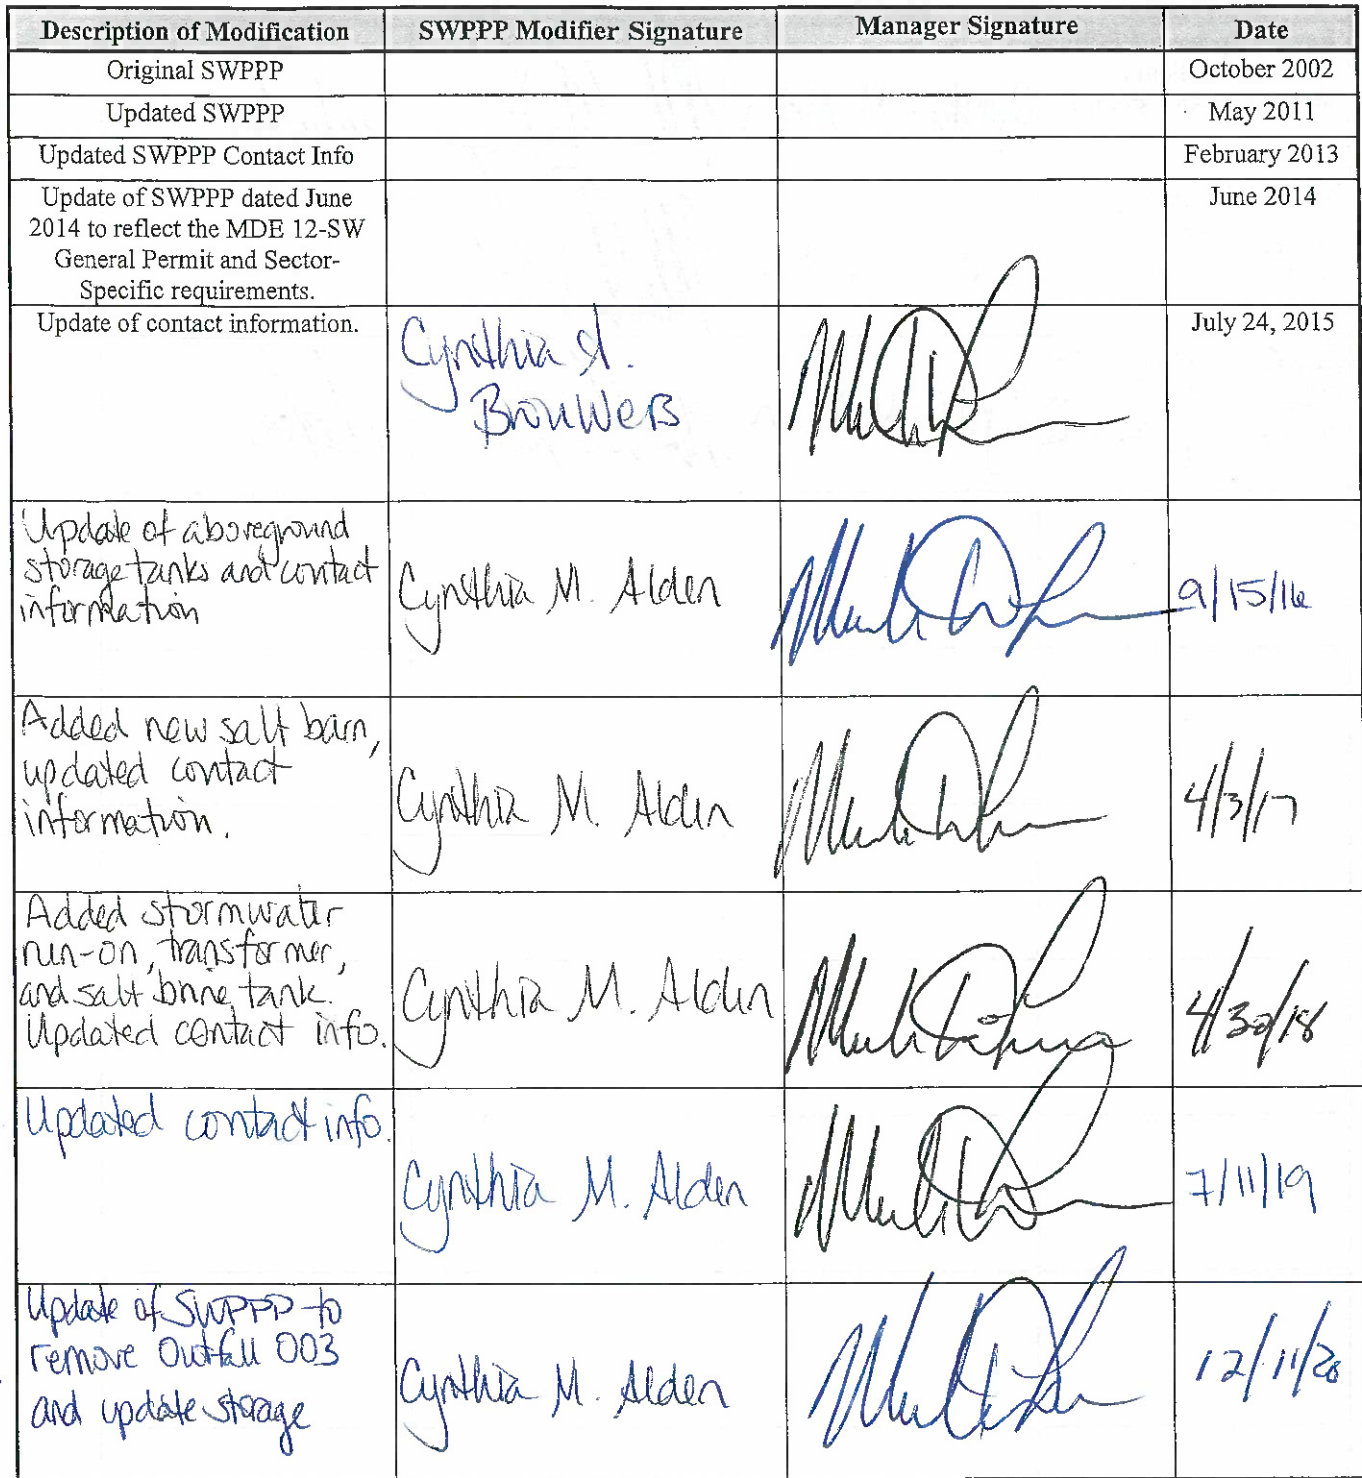 Description of Modification SWPPP Modifier Signature Manager Signature Date
Original SWPPP October 2002
Updated SWPPP May 2011
Updated SWPPP Contact Info February 2013
Update of SWPPP dated June June 2014
2014 to reflect the MDE 12-SW
General Permit and Sector-
Specific requirements.
Update of contact information. July 24, 2015
Cynthia A.
Brouwers
Update of aboveground
storage tanks and contact
information
Cynthia M. Alden
9/15/16
Added new salt barn,
updated contact
information.
Cynthia M. Alden
4/3/17
Added stormwater
run-on, transformer,
and salt brine tank.
Updated contact info.
Cynthia M. Alden
4/30/18
Updated contact info.
Cynthia M. Alden
7/11/19
Update of SWPPP to
remove Outfall 003
and update storage
Cynthia M. Alden
12/11/20